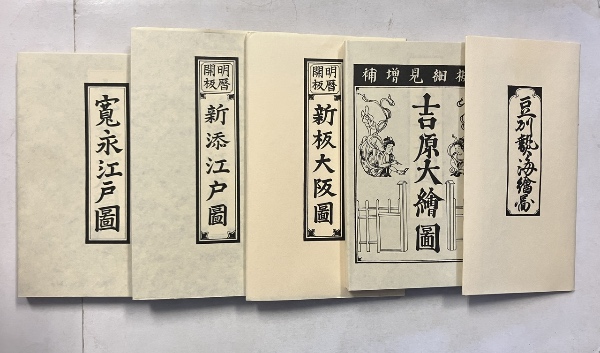 寬永江戸圖
明暦
開板
新添江戸圖
明暦
開板
新板大阪圖
細見增補
吉原大繪圖
豆州熱海繪圖